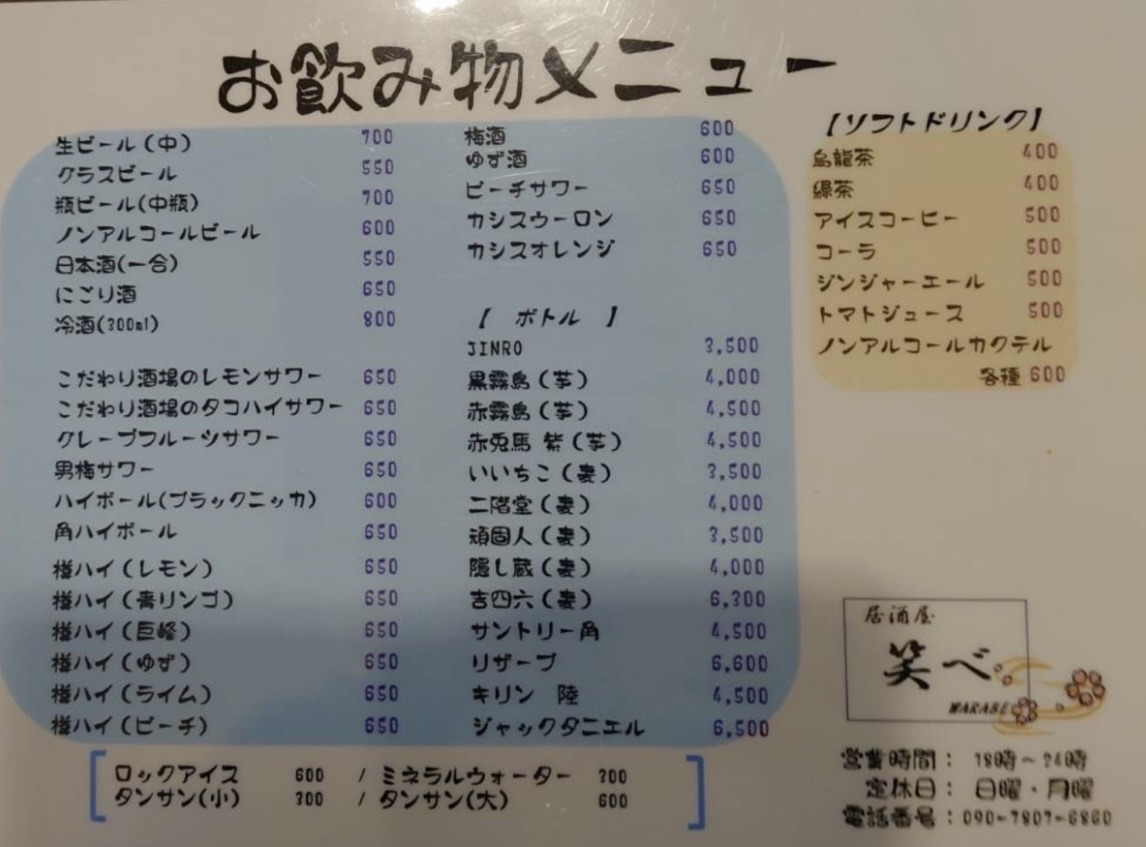 お飲み物メニュー
生ビール（中） 700
グラスビール 550
瓶ビール(中瓶) 700
ノンアルコールビール 600
日本酒(一合) 550
にごり酒 650
冷酒(300ml) 800
こだわり酒場のレモンサワー 650
こだわり酒場のタコハイサワー 650
グレープフルーツサワー 650
男梅サワー 650
ハイボール(ブラックニッカ) 600
角ハイボール 650
樽ハイ（レモン） 650
樽ハイ（青リンゴ） 650
樽ハイ（巨峰） 650
樽ハイ（ゆず） 650
樽ハイ（ライム） 650
樽ハイ（ピーチ） 650
梅酒 600
ゆず酒 600
ピーチサワー 650
カシスウーロン 650
カシスオレンジ 650
【 ボトル 】
JINRO 3,500
黒霧島（芋） 4,000
赤霧島（芋） 4,500
赤兎馬 紫（芋） 4,500
いいちこ（麦） 3,500
二階堂（麦） 4,000
頑固人（麦） 3,500
隠し蔵（麦） 4,000
吉四六（麦） 6,300
サントリー角 4,500
リザーブ 6,600
キリン 陸 4,500
ジャックダニエル 6,500
【ソフトドリンク】
烏龍茶 400
緑茶 400
アイスコーヒー 500
コーラ 500
ジンジャーエール 500
トマトジュース 500
ノンアルコールカクテル
各種 600
ロックアイス 600 / ミネラルウォーター 300
タンサン(小) 300 / タンサン(大) 600
居酒屋
笑べ
WARABE
営業時間： 18時～24時
定休日： 日曜・月曜
電話番号：090-7807-6860